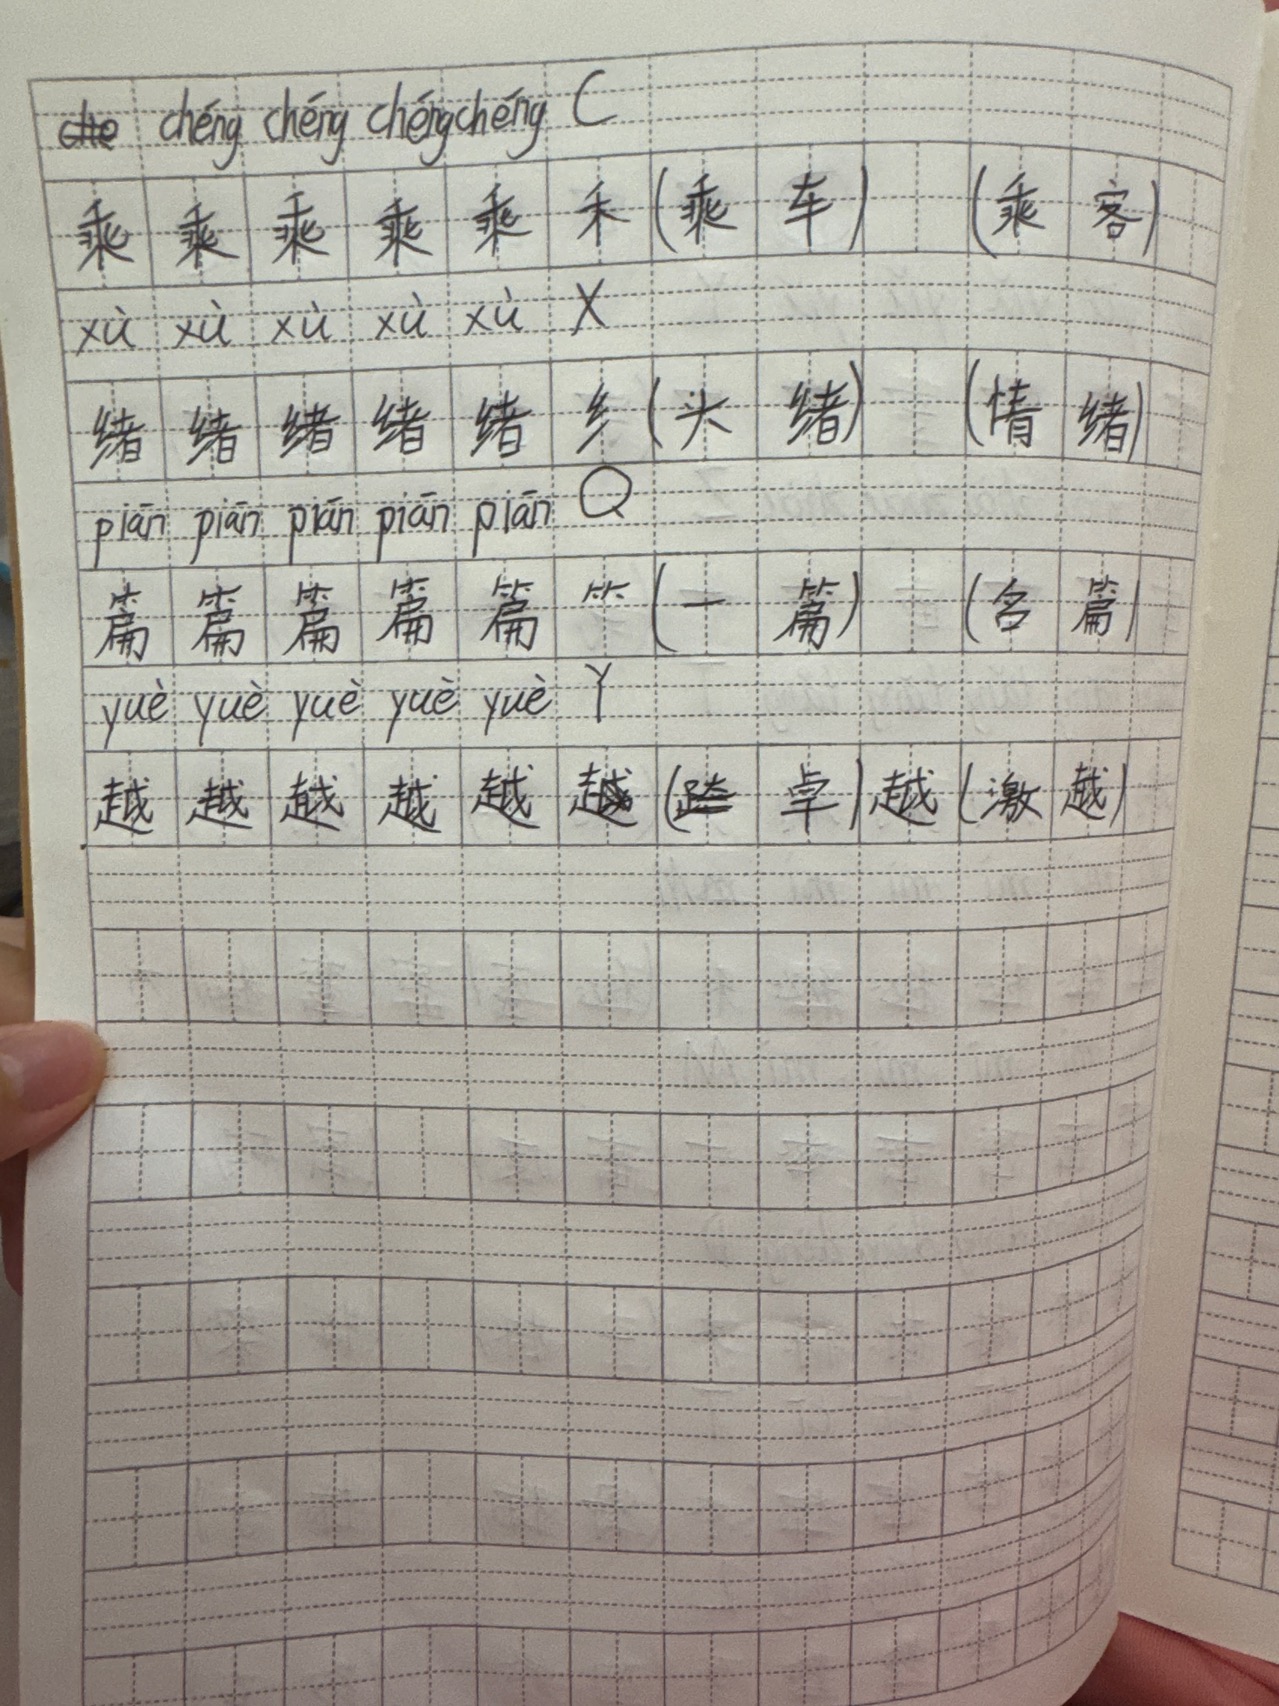 chéng chéng chéng chéng C
乘 乘 乘 乘 乘 禾 (乘 车) (乘 客)
xù xù xù xù xù X
绪 绪 绪 绪 绪 纟 (头 绪) (情 绪)
piān piān piān piān piān Q
篇 篇 篇 篇 篇 ⺮ (一 篇) (名 篇)
yuè yuè yuè yuè yuè Y
越 越 越 越 越 越 ( 卓) 越 (激 越)